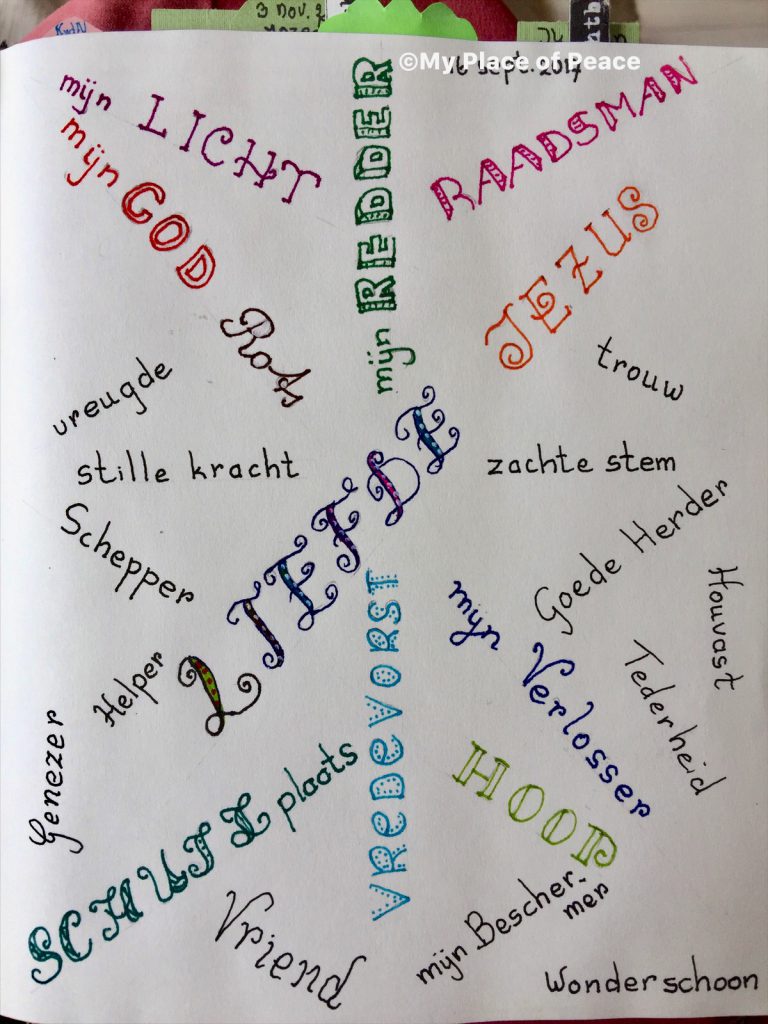 3 Nov. 2
©My Place of Peace
16 sept. 2017
mijn LICHT
mijn GOD
mijn REDDER
RAADSMAN
JEZUS
Rots
trouw
vreugde
stille kracht
LIEFDE
zachte stem
Schepper
Goede Herder
Houvast
mijn Verlosser
Tederheid
Helper
VREDEVORST
Genezer
SCHUILplaats
HOOP
Vriend
mijn Bescher-
mer
Wonderschoon